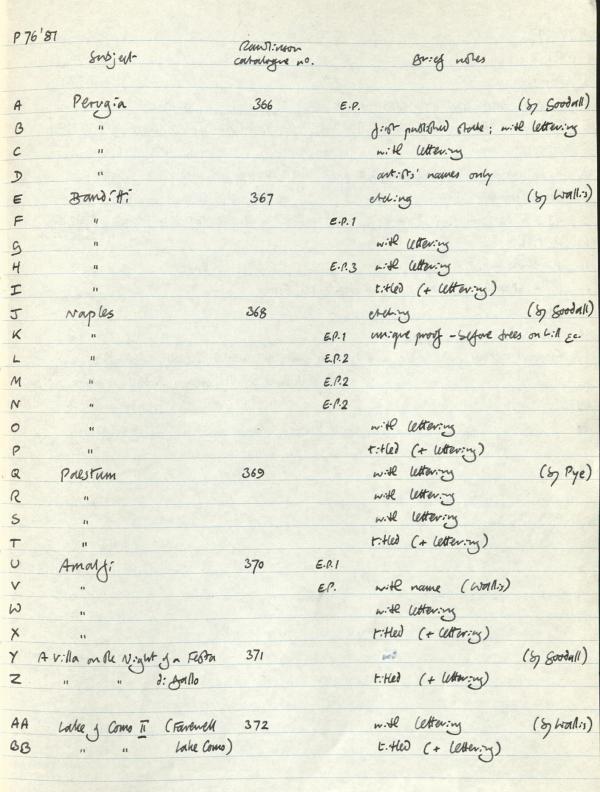 P 76'87
Subject Rawlinson catalogue no. Brief notes
A Perugia 366 E.P. (by Goodall)
B " first published state; with lettering
C " with lettering
D " artists' names only
E Banditti 367 etching (by Wallis)
F " E.P.1
G " with lettering
H " E.P.3 with lettering
I " titled (+ lettering)
J Naples 368 etching (by Goodall)
K " E.P.1 unique proof - before trees on hill &c.
L " E.P.2
M " E.P.2
N " E.P.2
O " with lettering
P " titled (+ lettering)
Q Paestum 369 with lettering (by Pye)
R " with lettering
S " with lettering
T " titled (+ lettering)
U Amalfi 370 E.P.1
V " E.P. with name (Wallis)
W " with lettering
X " titled (+ lettering)
Y A Villa on the Night of a Festa 371 (by Goodall)
Z " " di Gallo titled (+ lettering)
AA Lake of Como II (Farewell 372 with lettering (by Wallis)
BB " " Lake Como) titled (+ lettering)